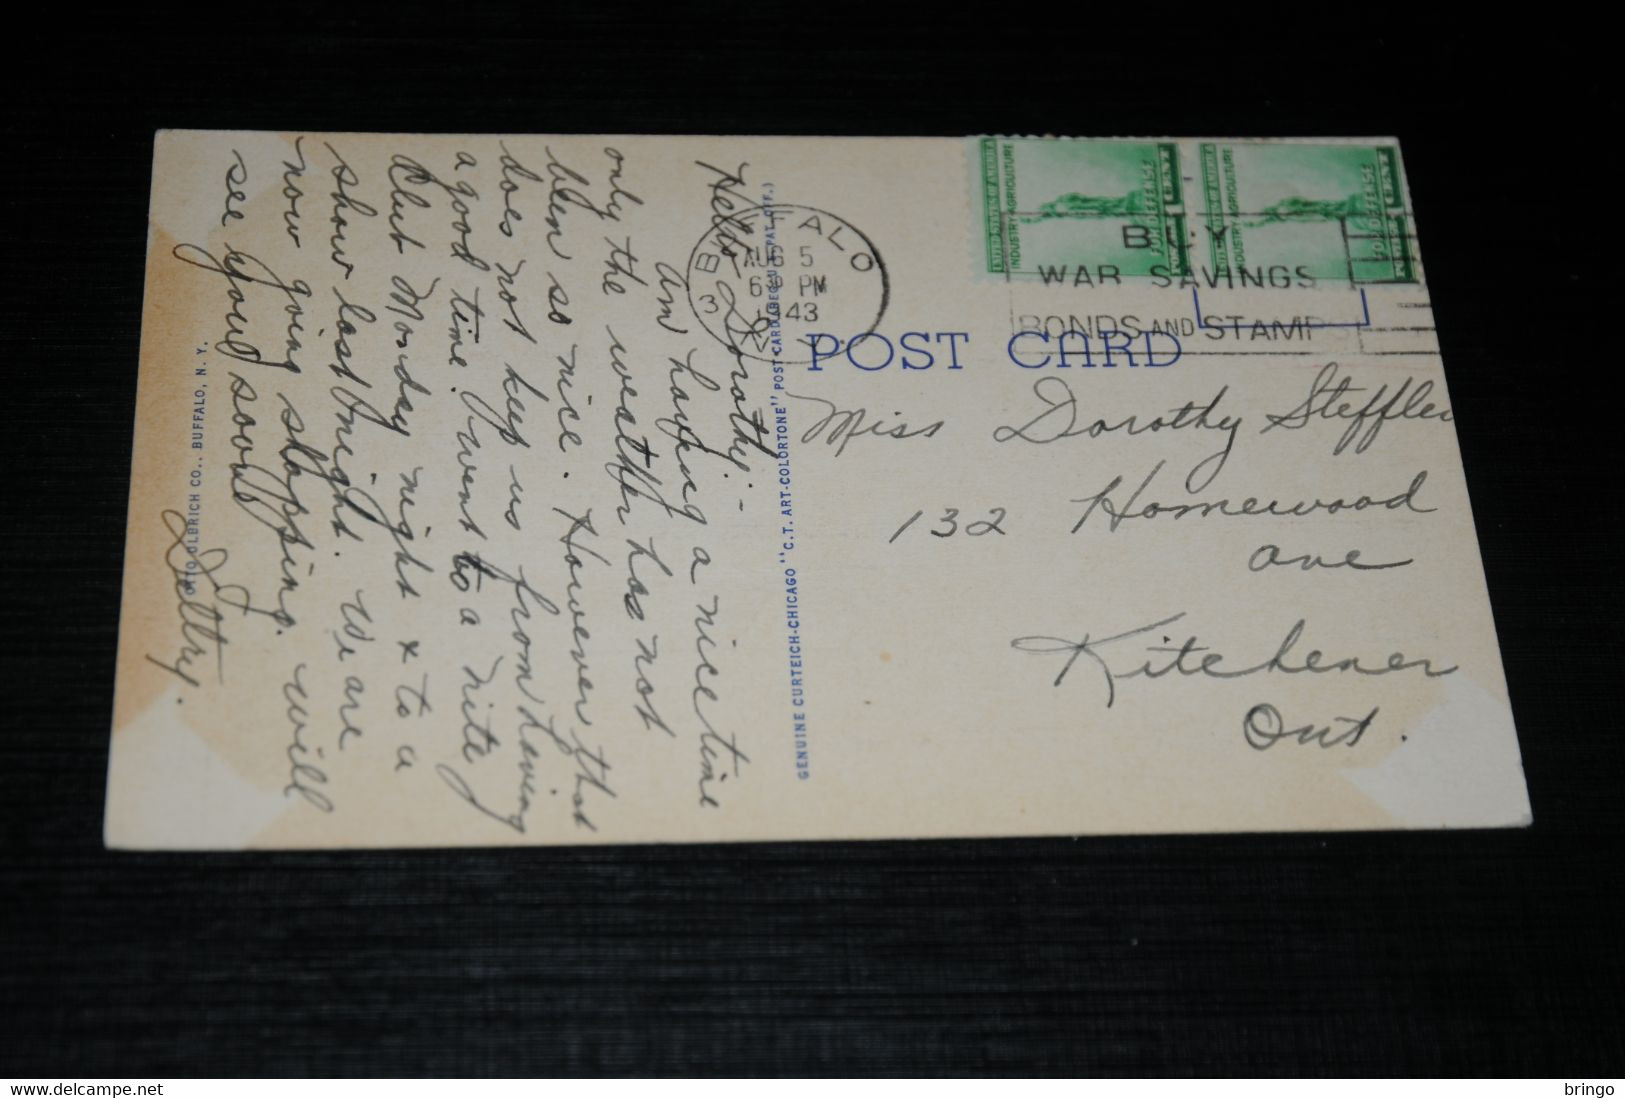 Hello Dorothy:-
am having a nice time
only the weather has not
been so nice. However that
does not keep us from having
a good time. I went to a nite
Club Monday night & to a
show last night. We are
now going shopping. will
see you soon
Dottry.
OTTO ULBRICH CO., BUFFALO, N. Y.
GENUINE CURTEICH-CHICAGO "C.T. ART-COLORTONE" POST CARD (REG. U.S. PAT. OFF.)
BUFFALO
AUG 5
6 PM
1943
N.Y.
3
UNITED STATES OF AMERICA
INDUSTRY AGRICULTURE
FOR DEFENSE
UNITED STATES OF AMERICA
INDUSTRY AGRICULTURE
FOR DEFENSE
BUY
WAR SAVINGS
BONDS AND STAMPS
POST CARD
Miss Dorothy Steffler
132 Homewood
ave
Kitchener
Ont.
delcampe.net
bringo